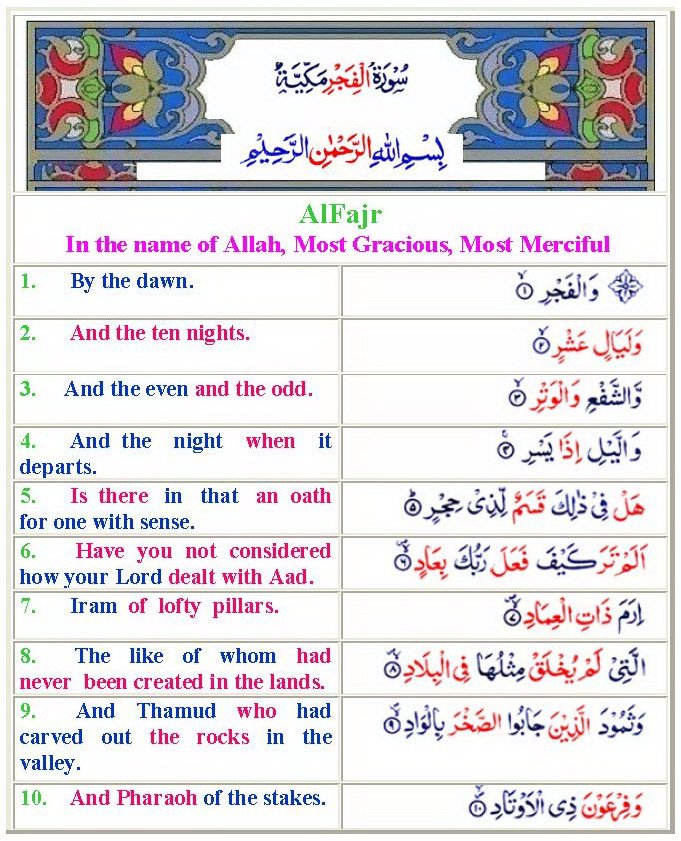 سُورَةُ الْفَجْرِ مَكِّيَّةٌ
بِسْمِ اللهِ الرَّحْمٰنِ الرَّحِيْمِ
AlFajr
In the name of Allah, Most Gracious, Most Merciful
1. By the dawn.
وَالْفَجْرِ ۙ‏﴿۱﴾
2. And the ten nights.
وَلَيَالٍ عَشْرٍ ۙ‏﴿۲﴾
3. And the even and the odd.
وَّالشَّفْعِ وَالْوَتْرِ ۙ‏﴿۳﴾
4. And the night when it
departs.
وَالَّيْلِ اِذَا يَسْرِ ۚ‏﴿۴﴾
5. Is there in that an oath
for one with sense.
هَلْ فِيْ ذٰلِكَ قَسَمٌ لِّذِيْ حِجْرٍ ؕ‏﴿۵﴾
6. Have you not considered
how your Lord dealt with Aad.
اَلَمْ تَرَ كَيْفَ فَعَلَ رَبُّكَ بِعَادٍ ۙ‏﴿۶﴾
7. Iram of lofty pillars.
اِرَمَ ذَاتِ الْعِمَادِ ۙ‏﴿۷﴾
8. The like of whom had
never been created in the lands.
الَّتِيْ لَمْ يُخْلَقْ مِثْلُهَا فِي الْبِلَادِ ۙ‏﴿۸﴾
9. And Thamud who had
carved out the rocks in the
valley.
وَثَمُوْدَ الَّذِيْنَ جَابُوا الصَّخْرَ بِالْوَادِ ۙ‏﴿۹﴾
10. And Pharaoh of the stakes.
وَفِرْعَوْنَ ذِي الْاَوْتَادِ ۙ‏﴿۱۰﴾